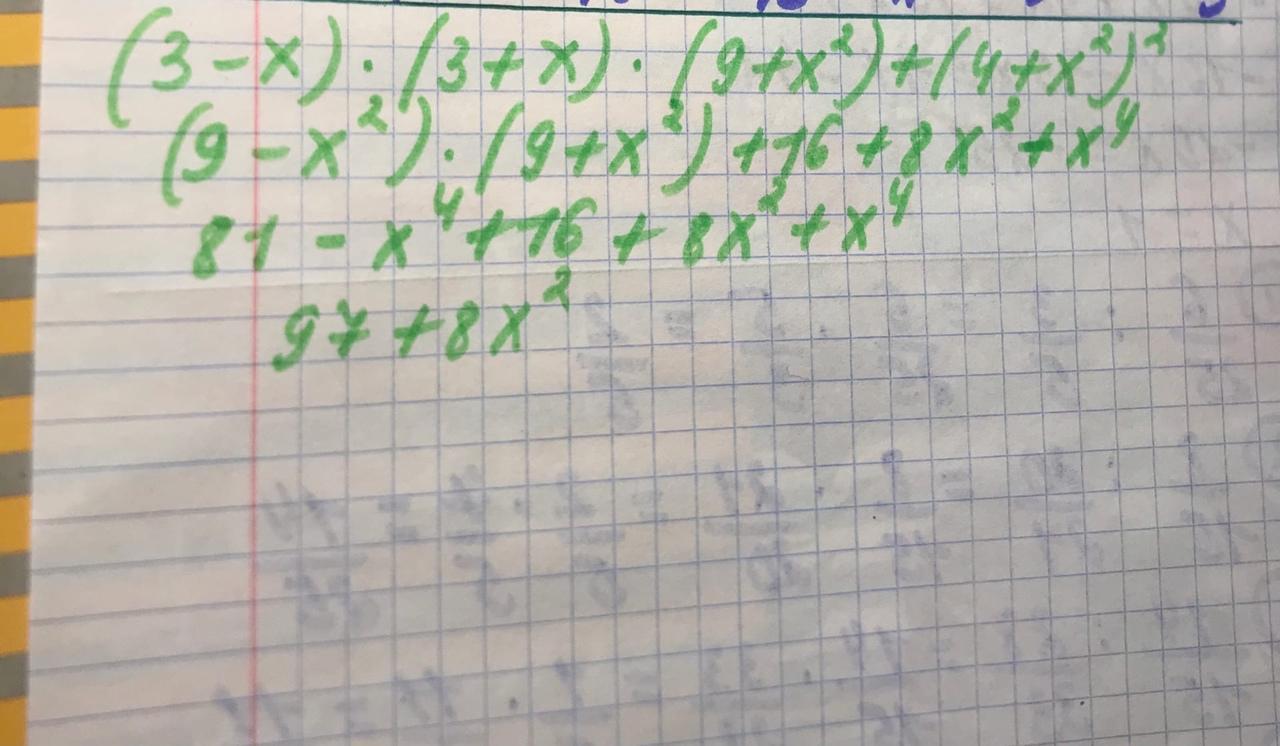 (3-x)·(3+x)·(9+x²)+(4+x²)²
(9-x²)·(9+x²)+16+8x²+x⁴
81-x⁴+16+8x²+x⁴
97+8x²